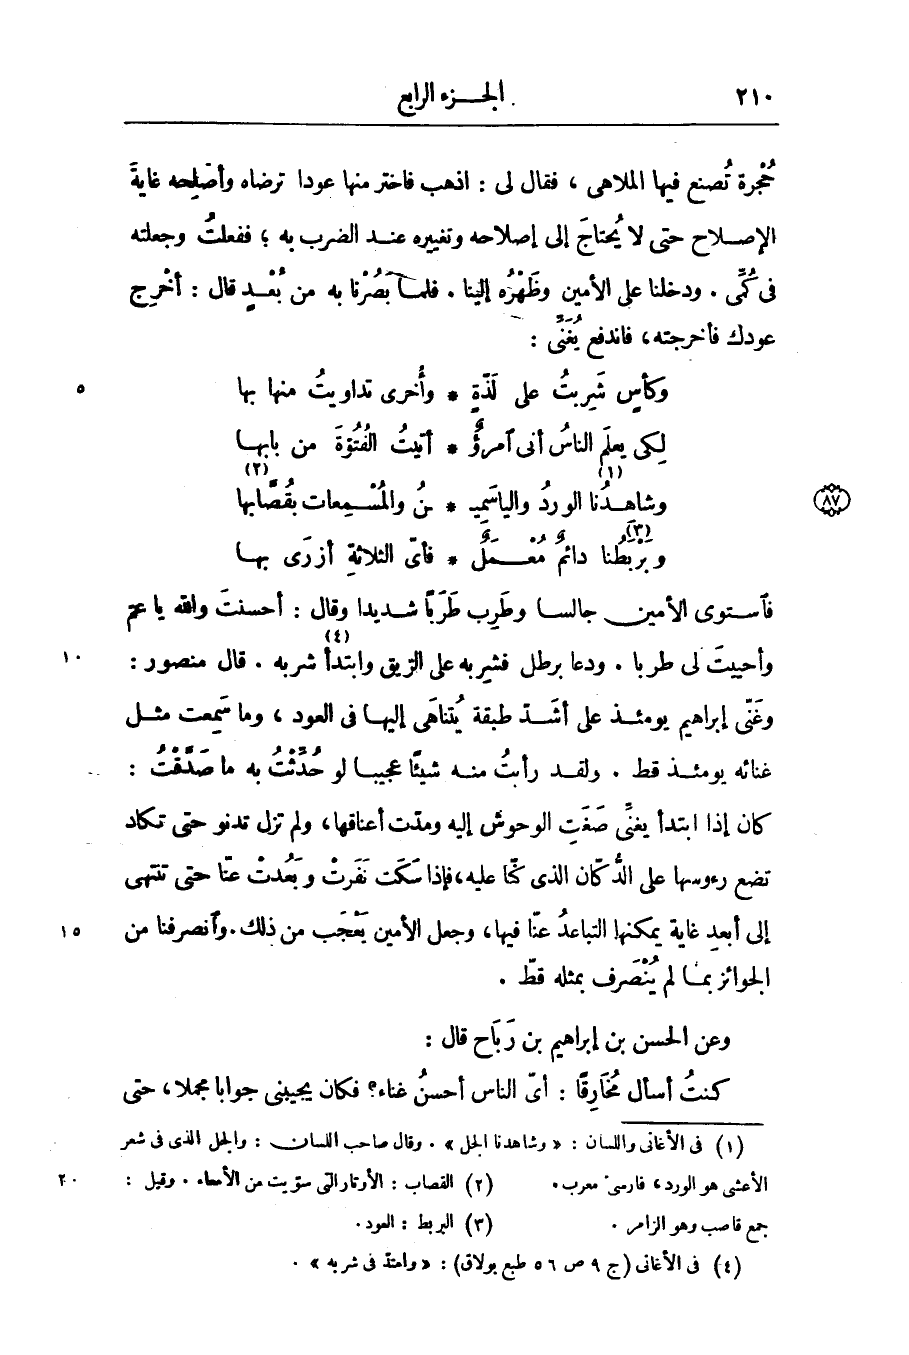 ٢١٠ الجـزء الرابع
حُجْرة تُصنع فيها الملاهى ، فقال لى : اذهب فاختر منها عودا ترضاه وأَصْلِحه غايةَ
الإصـلاح حتى لا يُحتاجَ إلى إصلاحه وتغييره عنـد الضرب به ؛ ففعلتُ وجعلته
فى كُمِّى . ودخلنا على الأمين وظَهْرُه إلينا . فلمـا بَصُرْنا به من بُعْـدٍ قال : أَخْرِج
عودك فأخرجته، فاندفع يُغَنِّى :
٥ وكأسٍ شَرِبتُ على لَذّةٍ * وأُخرى تداويتُ منها بها
لِكى يعلَم الناسُ أنى ٱمرؤٌ * أتيتُ الفُتُوّةَ من بابهـا
وشاهـدُنا الوردُ (١) والياسَمِيـ * ـنُ والمُسْـمِعات بقُصَّابها (٢)
٨٧
وبَرْبَطُنا (٣) دائمٌ مُعْمـَلٌ * فأىّ الثلاثةِ أَزرَى بهـا
فٱسـتوى الأميـن جالسـا وطَرِب طَرَبًا شـديدا وقال : أحسنتَ والله يا عمّ
١٠ وأحييتَ لى طربا . ودعا برطل فشَرِبه على الرّيق وابتدأ (٤) شربه . قال منصور :
وغَنَّى إبراهيم يومئـذ على أشـدّ طبقة يُتناهَى إليهـا فى العود ، وما سَمِعت مثـل
غنائه يومئـذ قط . ولقـد رأيتُ منـه شيئًا عجيبـا لو حُدِّثْتُ به ما صَدَّقْتُ :
كان إذا ابتدأ يغنِّى صَغَتِ الوحوش إليه ومدّت أعناقها، ولم تزل تدنو حتى تكاد
تضع رءوسها على الدُّكّان الذى كنّا عليه، فإذا سَكَت نَفَرتْ وبَعُدتْ عنّا حتى تنتهى
١٥ إلى أبعدِ غاية يمكنها التباعدُ عنّا فيها، وجعل الأمين يَعْجَب من ذلك. وٱنصرفنا من
الجوائز بمـا لم يُنْصَرف بمثله قطّ .
وعن الحسن بن إبراهيم بن رَبَاح قال :
كنتُ أسأل مُخَارِقًا : أىّ الناس أحسنُ غناء؟ فكان يجيبنى جوابا مجملا، حتى
(١) فى الأغانى واللسان : « وشاهدنا الجل » . وقال صاحب اللسـان : والجل الذى فى شعر
٢٠ الأعشى هو الورد، فارسىّ معرب. (٢) القصاب : الأوتار التى سوّيت من الأمعاء . وقيل :
جمع قاصب وهو الزامر . (٣) البربط : العود.
(٤) فى الأغانى (ج ٩ ص ٥٦ طبع بولاق) : « وامتدّ فى شربه » .